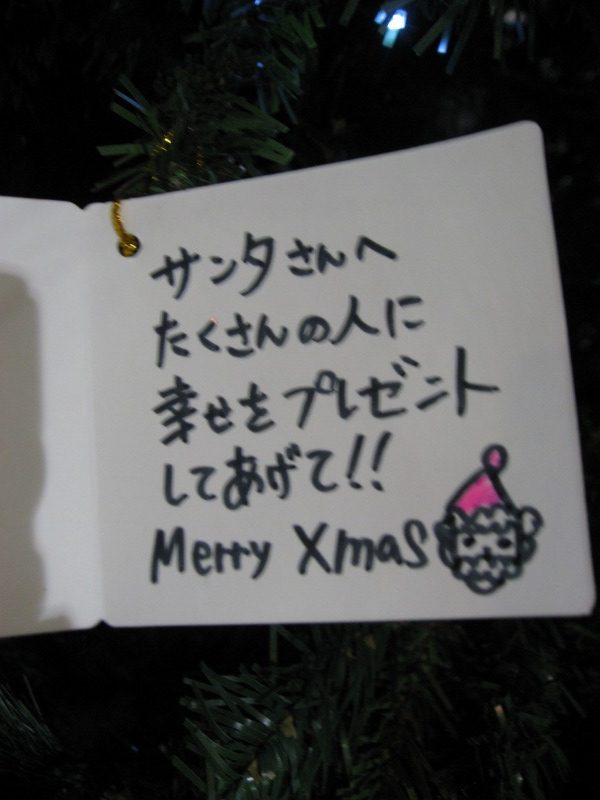 サンタさんへ
たくさんの人に
幸せをプレゼント
してあげて!!
Merry Xmas